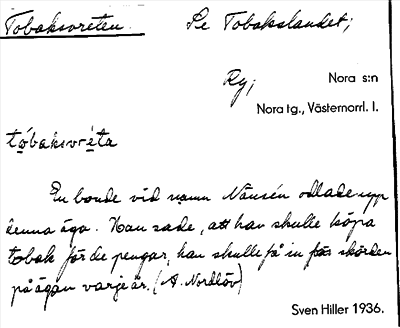 Tobaksvreten. Se Tobakslandet;
Ry; Nora s:n
Nora tg., Västernorrl. l.
tóbaksvrèta
En bonde vid namn Nänsén odlade upp
denna äga. Han sade, att han skulle köpa
tobak för de pengar, han skulle få in för skörden
på ägan varje år. (A. Nordlöv)
Sven Hiller 1936.